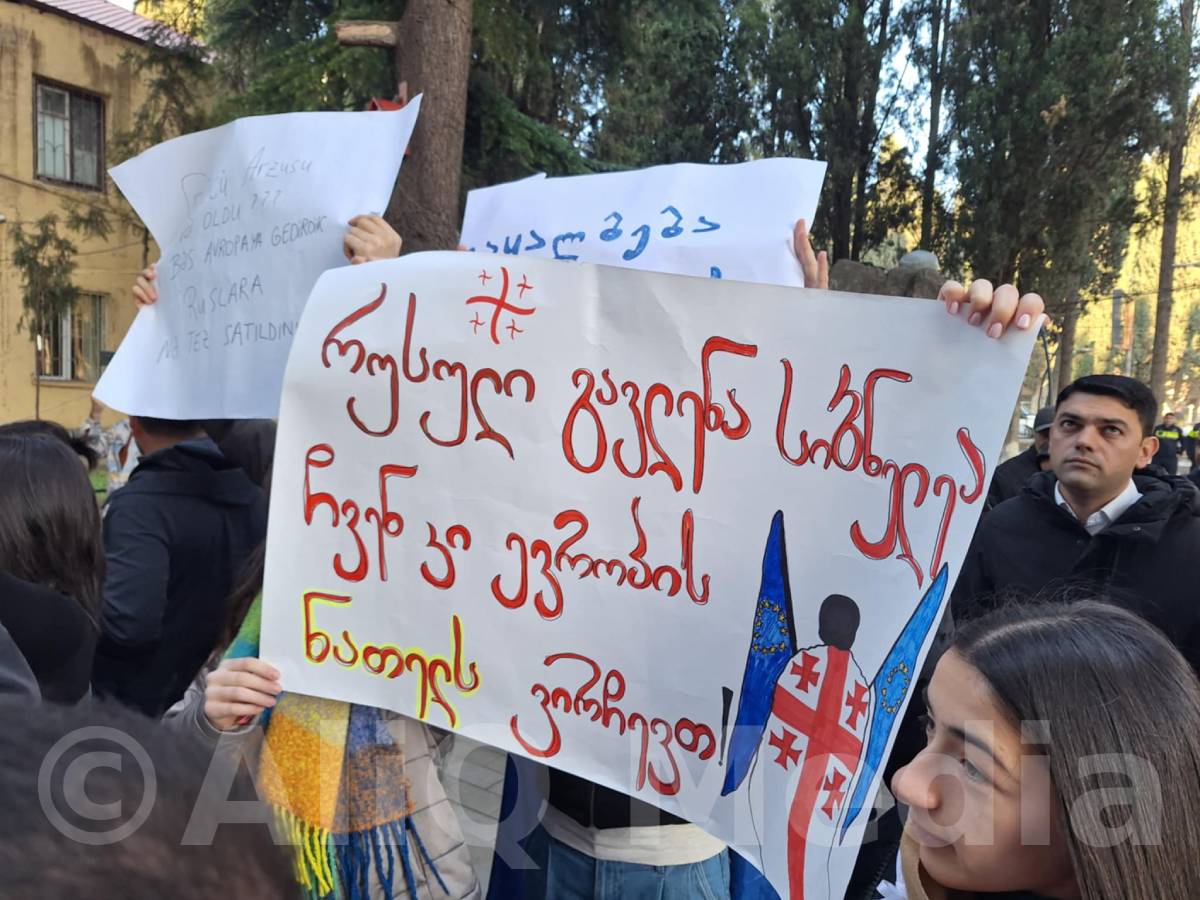 Arzusu
OLDU ???
BƏS AVROPAYA GEDİRDİK
RUSLARA
NƏ TEZ SATILDIN
გაყალბება
რუსული გავლენა სიბნელეა
ჩვენ კი ევროპის
ნათელს ვირჩევთ!
© AliQ Media